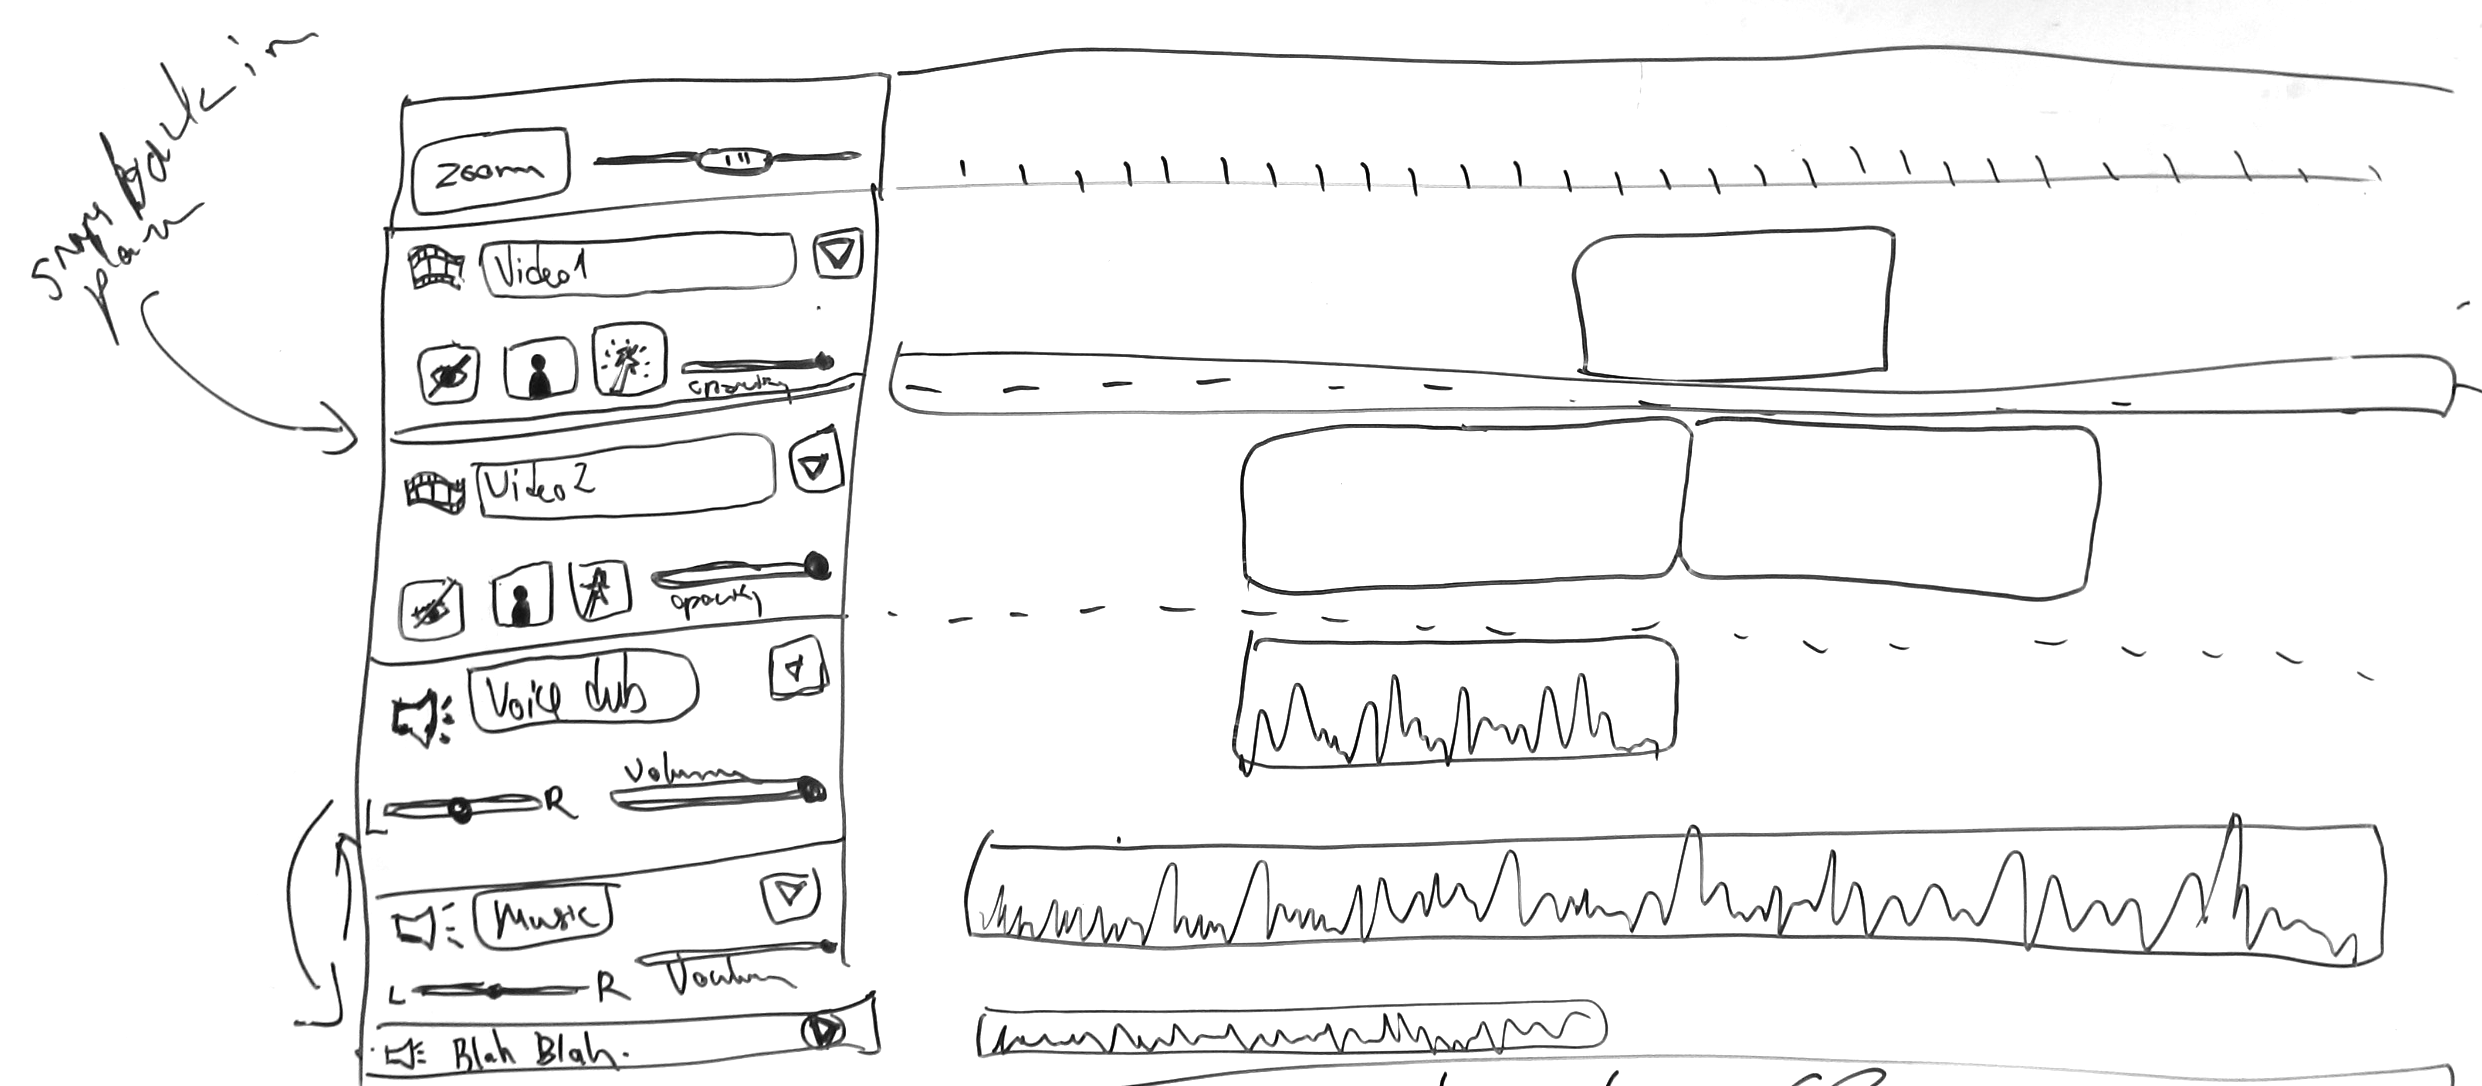 Snaps back in
place
Zoom
Video1
opacity
Video2
opacity
Voice dub
Volume
L
R
Music
L
R
Volume
Blah Blah.